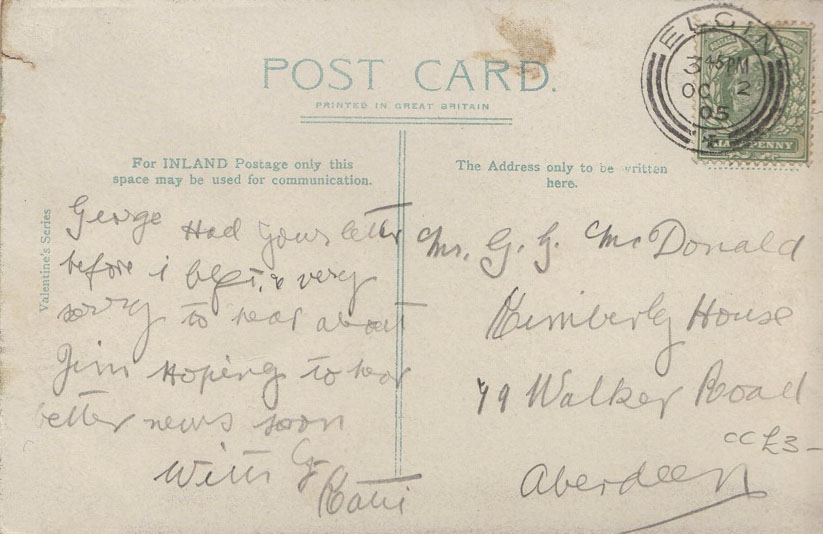 POST CARD.
PRINTED IN GREAT BRITAIN
ELGIN
3 45 PM
OC 2
05
HALFPENNY
For INLAND Postage only this
space may be used for communication.
The Address only to be written
here.
Valentine's Series
George Had your letter
before i left, & very
sorry to hear about
Jim Hoping to hear
better news soon
With
Mr. G. G. McDonald
Kimberly House
79 Walker Road
Aberdeen
CC £3-